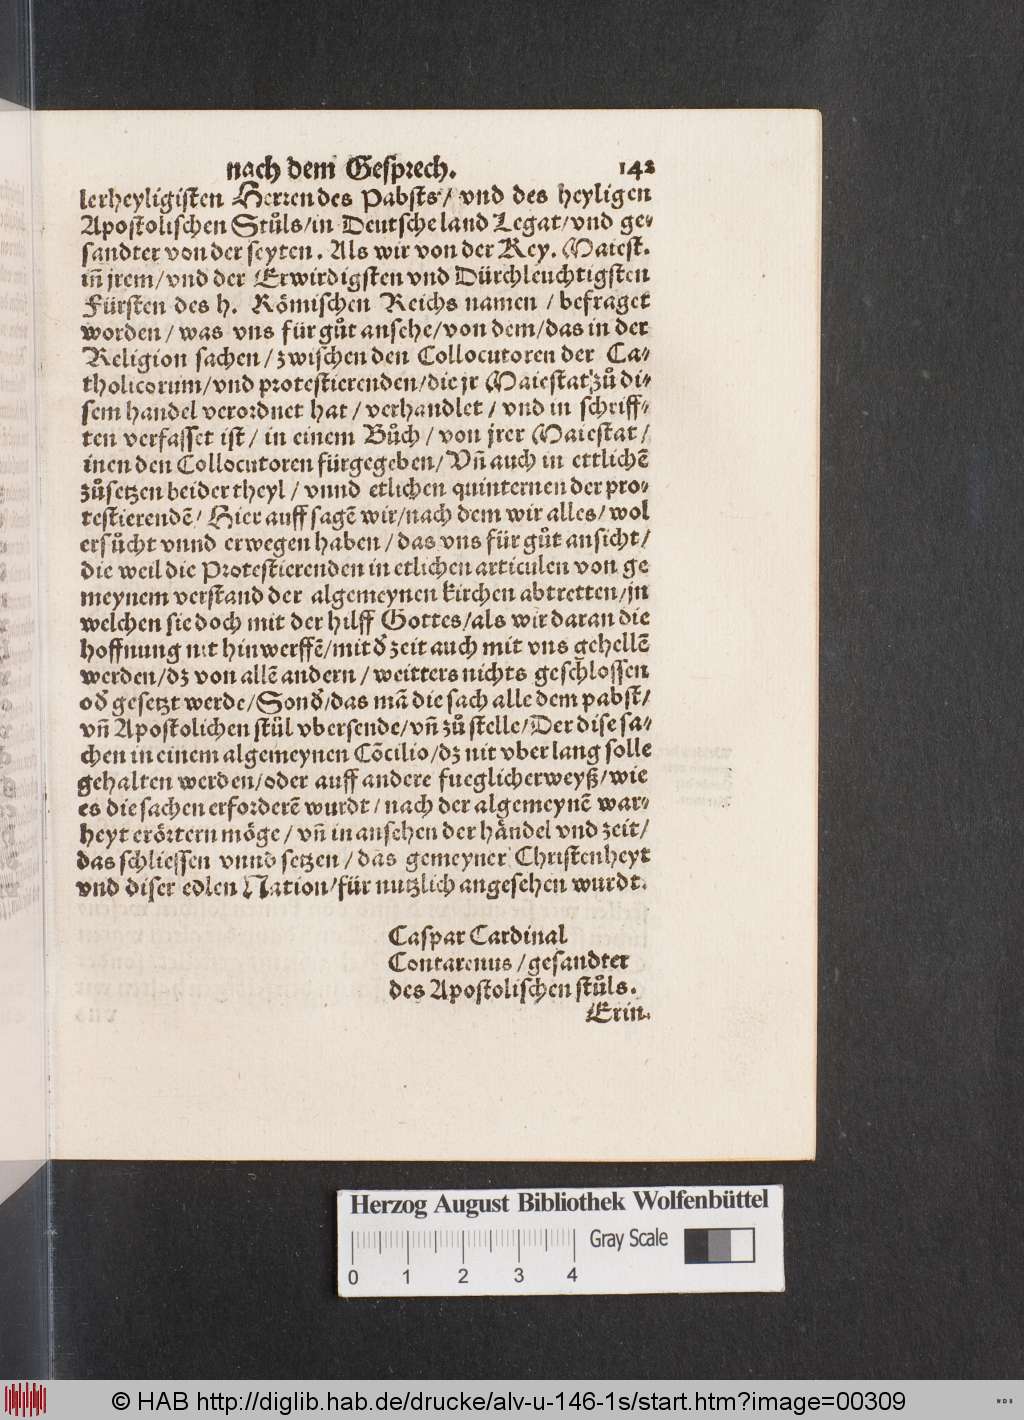 nach dem Gesprech. 142
lerheyligisten Herren des Pabsts / vnd des heyligen
Apostolischen Stůls/in Deutscheland Legat/vnd ge-
sandter von der seyten. Als wir von der Key. Maiest.
iñ jrem/vnd der Erwirdigsten vnd Dürchleuchtigsten
Fürsten des h. Römischen Reichs namen / befraget
worden / was vns für gůt ansehe/von dem/das in der
Religion sachen/zwischen den Collocutoren der Ca-
tholicorum/vnd protestierenden/die jr Maiestat zů di-
sem handel verordnet hat / verhandlet / vnd in schriff-
ten verfasset ist / in einem Bůch / von jrer Maiestat /
inen den Collocutoren fürgegeben/Vñ auch in ettlichē
zůsetzen beider theyl / vnnd etlichen quinternen der pro-
testierendē/ Hier auff sagē wir/nach dem wir alles/ wol
ersůcht vnnd erwegen haben / das vns für gůt ansicht/
die weil die Protestierenden in etlichen articulen von ge
meynem verstand der algemeynen kirchen abtretten/jn
welchen sie doch mit der hilff Gottes/als wir daran die
hoffnung nit hinwerffē/mit ď zeit auch mit vns gehellē
werden/dz von allē andern / weitters nichts geschlossen
oď gesetzt werde/Sonď/das mā die sach alle dem pabst/
vñ Apostolichen stůl vbersende/vñ zů stelle/Der dise sa-
chen in einem algemeynen Cōcilio/dz nit vber lang solle
gehalten werden/oder auff andere fueglicher weyß/wie
es die sachen erforderē wurdt / nach der algemeynē war-
heyt erörtern möge / vñ in ansehen der händel vnd zeit/
das schliessen vnnd setzen / das gemeyner Christenheyt
vnd diser edlen Nation/für nutzlich angesehen wurdt.
Caspar Cardinal
Contarenus / gesandter
des Apostolischen stůls.
Erin.
Herzog August Bibliothek Wolfenbüttel
Gray Scale
0 1 2 3 4
© HAB http://diglib.hab.de/drucke/alv-u-146-1s/start.htm?image=00309